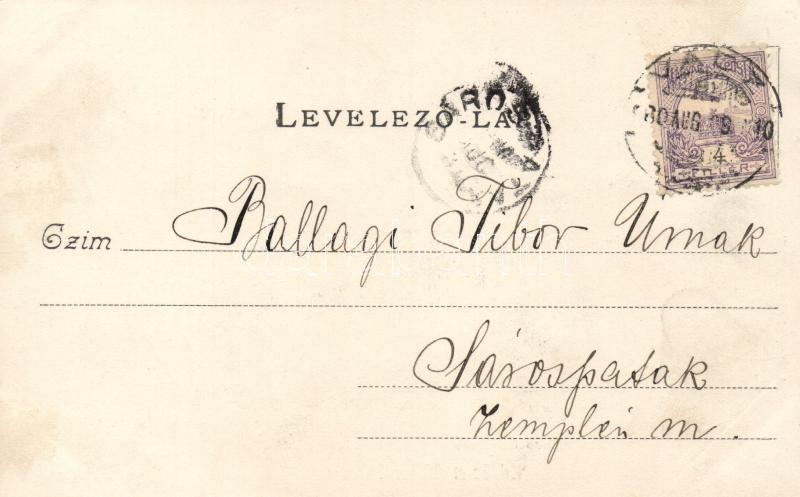 LEVELEZŐ-LAP
Czim Ballagi Tibor Urnak
Sárospatak
Zemplén m.